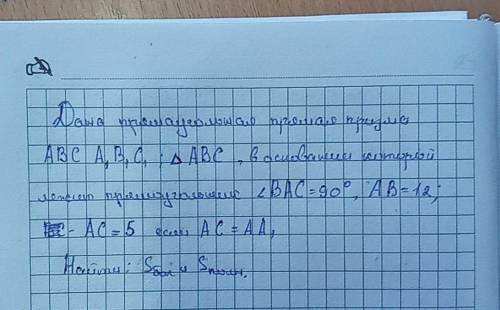 Дана прямоугольная прямая призма
ABC A₁B₁C₁; △ ABC, в основании которой
лежит прямоугольник ∠BAC=90°, AB=12;
- AC=5 если AC=AA₁
Найти: Sбок и Sполн.